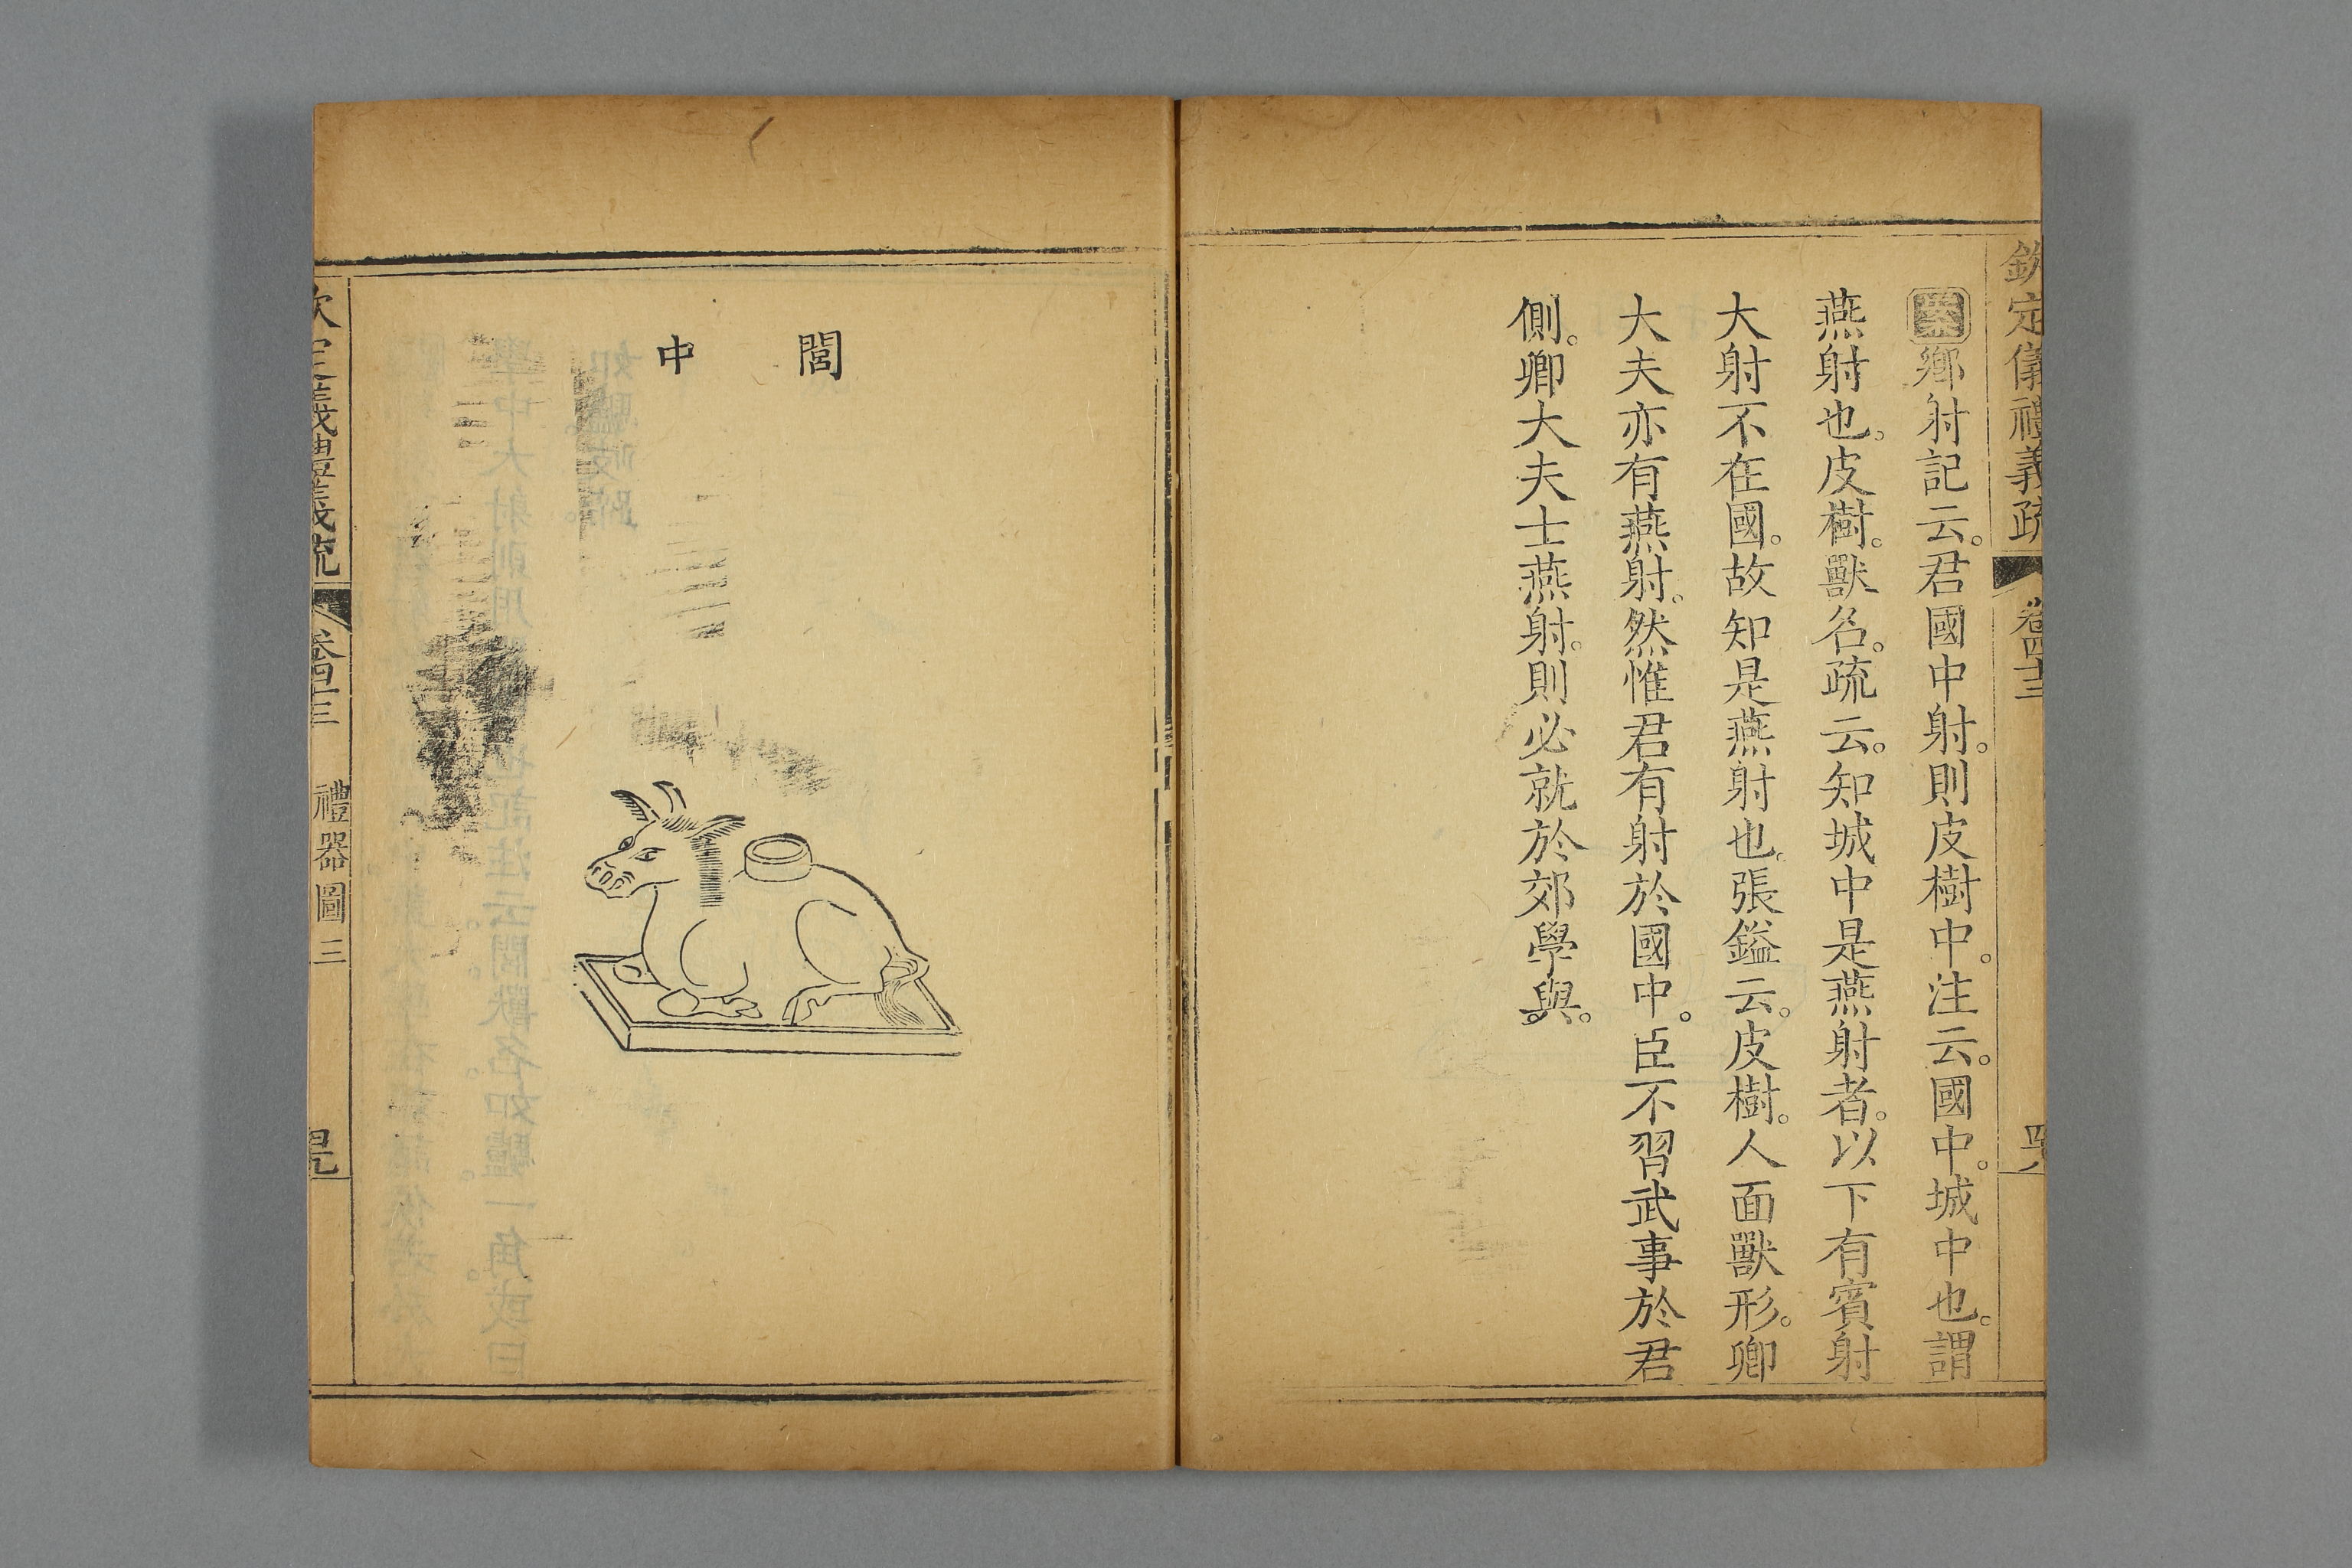 欽定儀禮義疏 卷四十三 四八
案鄉射記云。君國中射。則皮樹中。注云。國中。城中也。謂
燕射也。皮樹。獸名。疏云。知城中是燕射者。以下有賓射
大射不在國。故知是燕射也。張鎰云。皮樹。人面獸形。卿
大夫亦有燕射。然惟君有射於國中。臣不習武事於君
側。卿大夫士燕射。則必就於郊學與。
閭中
欽定儀禮義疏 卷四十三 禮器圖三 四九